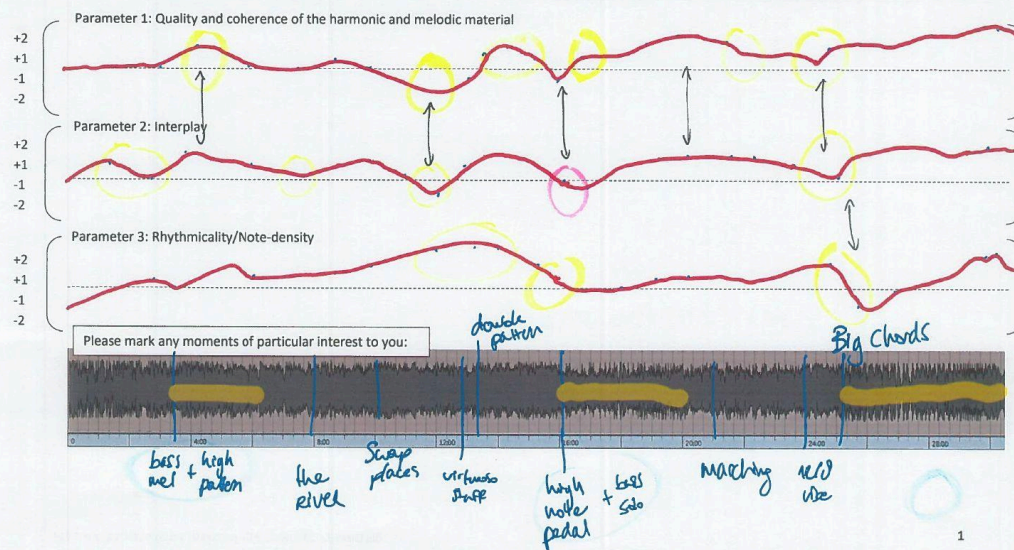 Parameter 1: Quality and coherence of the harmonic and melodic material
+2
+1
-1
-2
Parameter 2: Interplay
+2
+1
-1
-2
Parameter 3: Rhythmicality/Note-density
+2
+1
-1
-2
double
pattern
Big Chords
Please mark any moments of particular interest to you:
0 4:00 8:00 12:00 16:00 20:00 24:00 28:00
bass + high
mel pattern
the
river
Swap
places
virtuoso
stuff
high
note
pedal
+ bass
solo
Marching
1